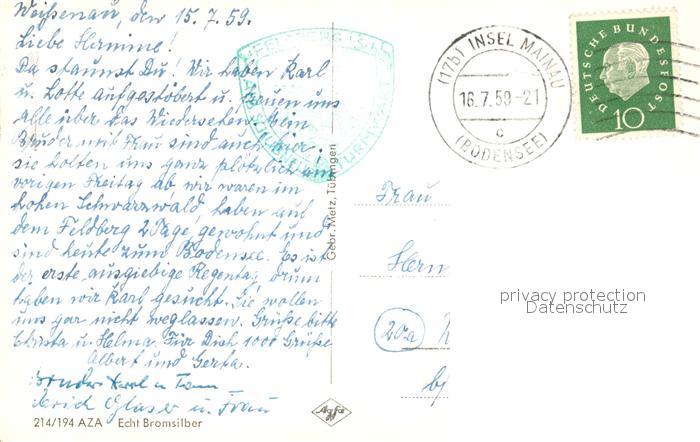 Weißenau, den 15.7.59.
Liebe Hermine!
Da staunst Du! Wir haben Karl
u. Lotte aufgestöbert u. freuen uns
alle über das Wiedersehen. Mein
Bruder mit Frau sind auch hier,
sie holten uns ganz plötzlich am
vorigen Freitag ab, wir waren im
hohen Schwarzwald, haben auf
dem Feldberg 2 Tage gewohnt und
sind heute zum Bodensee. Es ist
der erste ausgiebige Regentag, drum
haben wir Karl gesucht. Sie wollen
uns gar nicht weglassen. Grüße bitte
Christa u. Helma. Für Dich 1000 Grüße
Albert und Gerta.
Bruder Karl u.
Erich Glaser u. Frau
214/194 AZA Echt Bromsilber
Gebr. Metz, Tübingen
Agfa
(17b) INSEL MAINAU
16.7.59-21
c
(BODENSEE)
DEUTSCHE BUNDESPOST
10
Frau
Herm
20a
privacy protection
Datenschutz